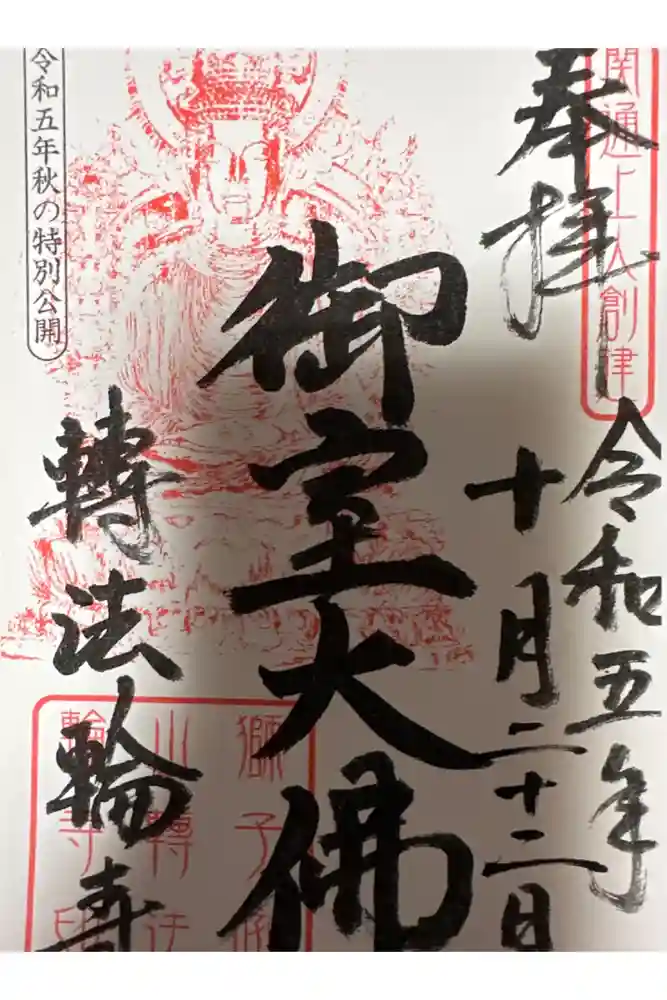 関通上人創建
奉拝
令和五年
十月二十二日
御室大佛
轉法輪寺
令和五年秋の特別公開
獅子吼
山轉法
輪寺印